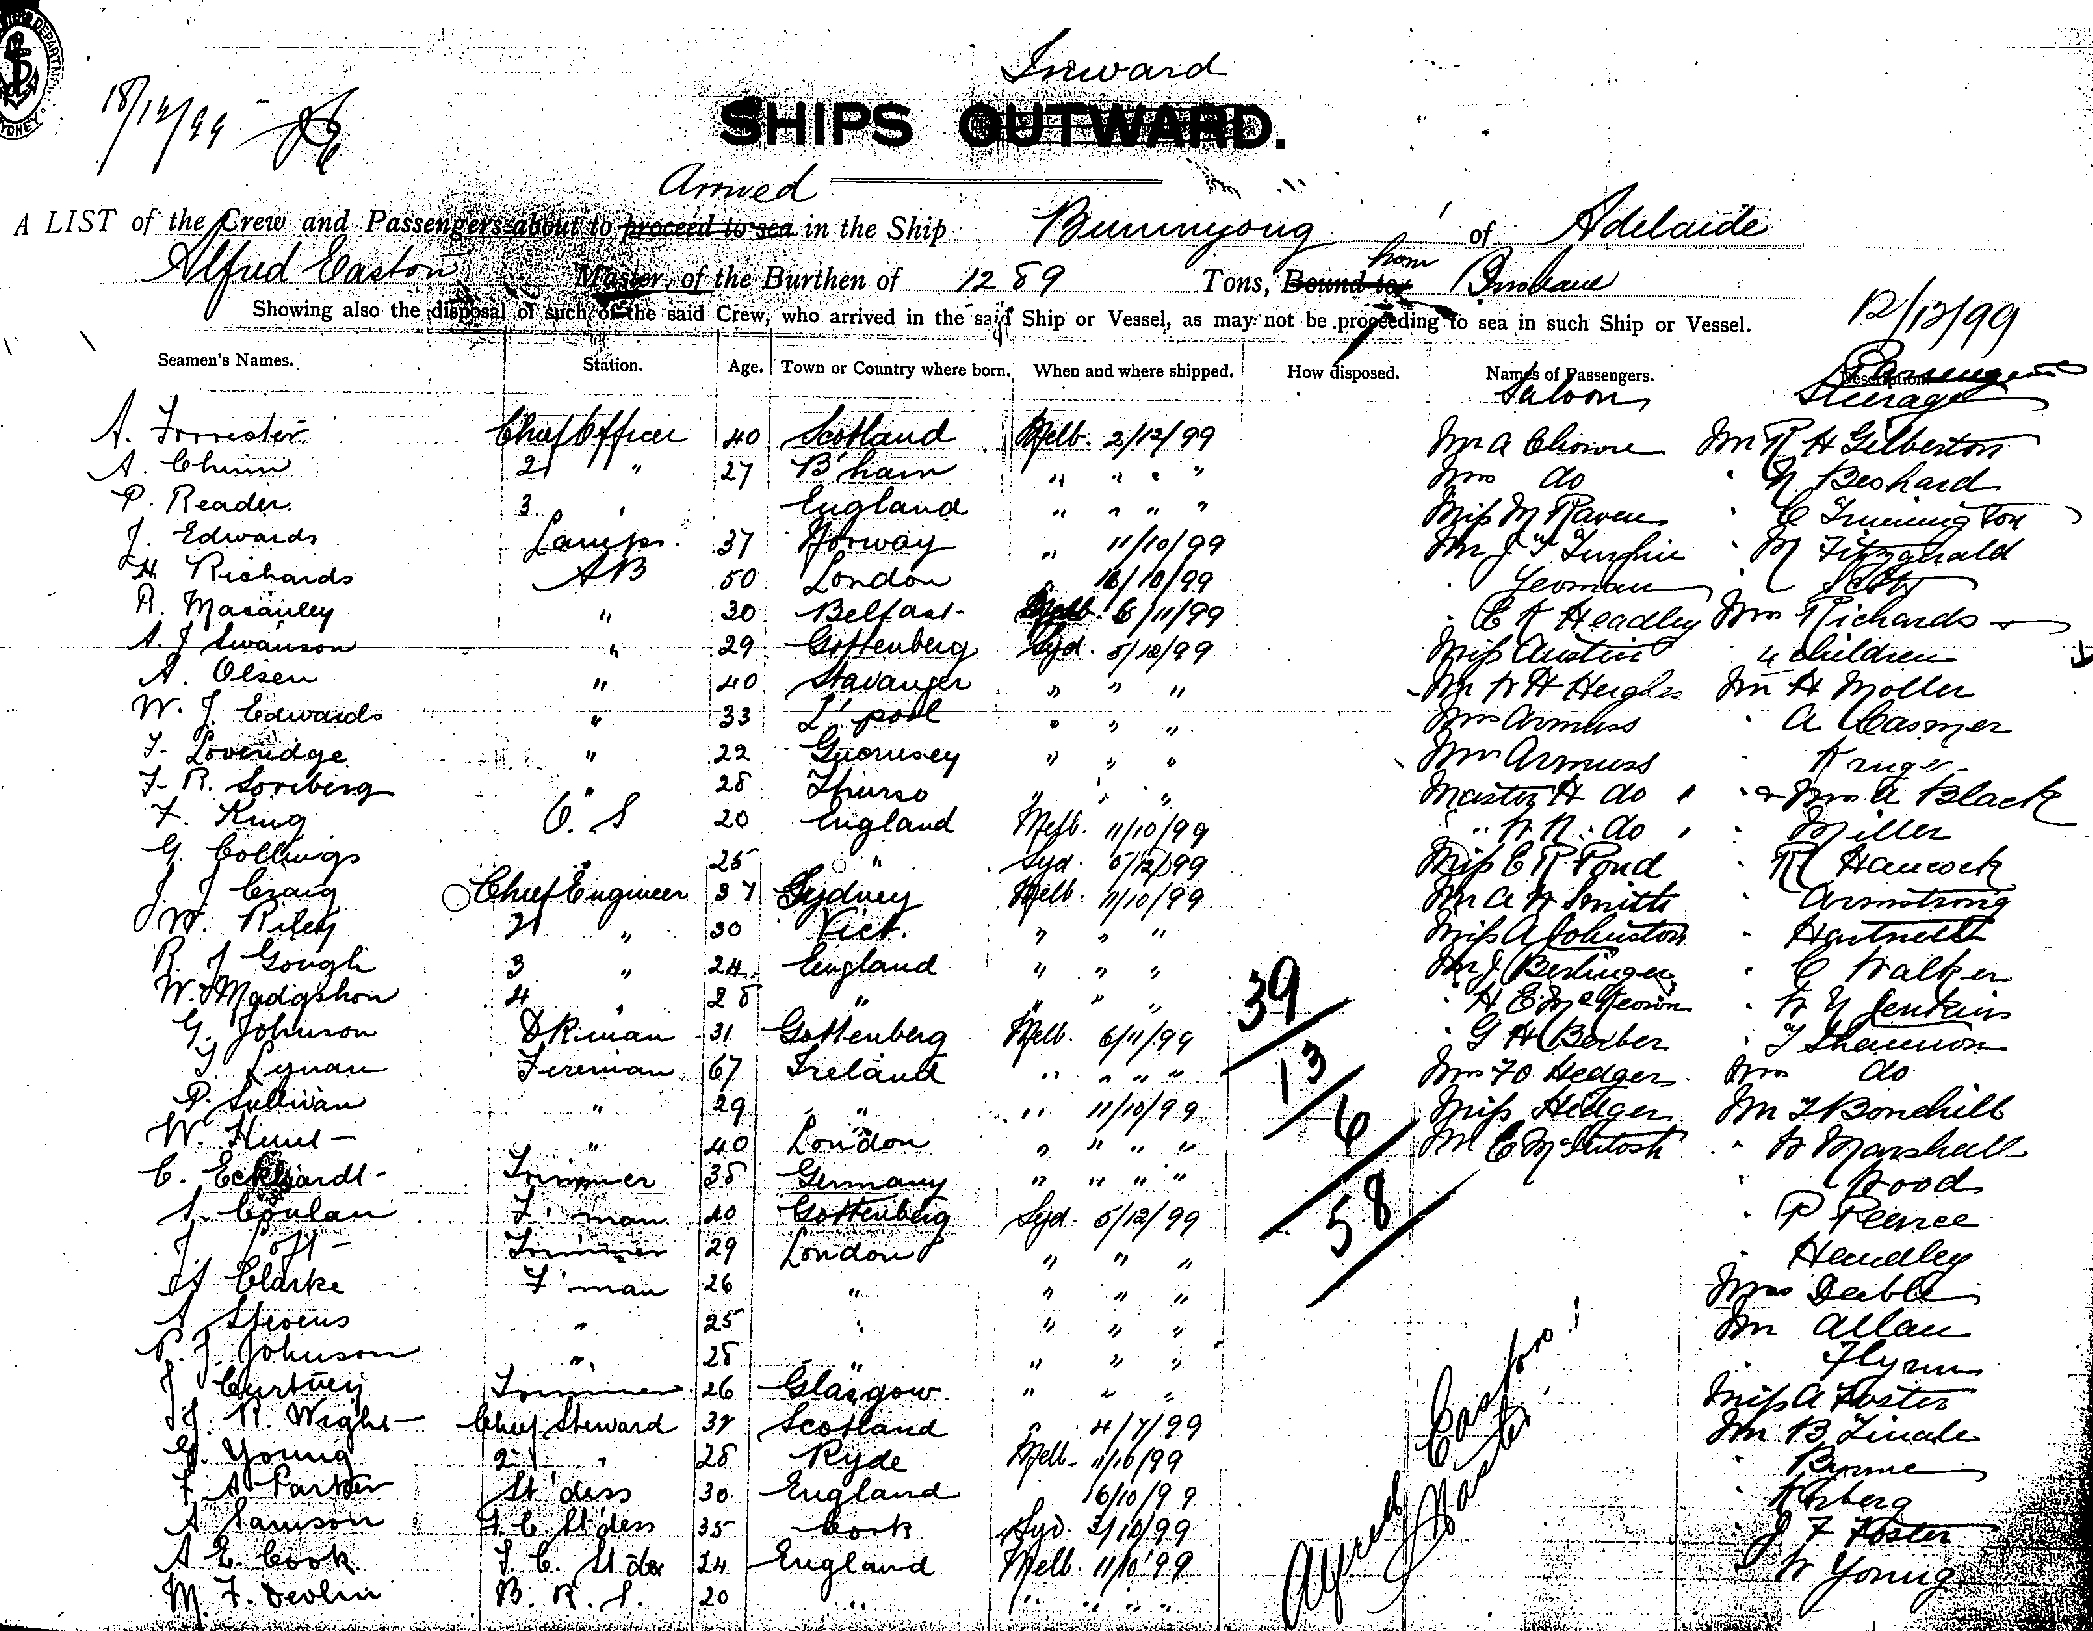 Inward
18/12/99
SHIPS OUTWARD.
Arrived
A LIST of the Crew and Passengers about to proceed to sea in the Ship Buninyong of Adelaide
Alfred Easton Master, of the Burthen of 1289 Tons, Bound to from Brisbane
Showing also the disposal of such of the said Crew, who arrived in the said Ship or Vessel, as may not be proceeding to sea in such Ship or Vessel.
12/12/99
Seamen's Names. Station. Age. Town or Country where born. When and where shipped. How disposed. Names of Passengers. Description
Saloon Passengers Steerage
A. Forrester Chief Officer 40 Scotland Melb. 2/12/99 Mr A Chowne Mr R H Gilbertson
A. Chum 2 " 27 B'ham " " " " Mrs do " N Beshard
P. Reader 3 " England " " " " Miss M Raven " C Trunnington
J. Edwards Lamps. 37 Norway " 11/10/99 Mr J T " M Fitzgerald
H. Richards AB 50 London 16/10/99 " Yeoman
R. Macauley " 30 Belfast Melb. 6/11/99 " C R Headley Mrs Richards &
A. J Swanson " 29 Gottenberg Syd. 5/12/99 Miss Austin 4 children
A. Olsen " 40 Stavanger " " " Mr W H Heighes Mr H Moller
W. J. Edwards " 33 L'pool " " " Mrs Armuss " A Casmer
F. Loveridge " 22 Guernsey " " " Mrs Armuss " Kruger
F. R. Soreberg " 28 Thurso " " " Master H do " & Mrs A Black
F. King O. S 20 England Melb. 11/10/99 " W R. do " Miller
G. Collings 25 " Syd. 5/12/99 Miss E R Pond " R Hancock
J J Craig Chief Engineer 37 Sydney Melb. 11/10/99 Mr A W Smith " Armstrong
W. Riley 2 " 30 Vict. " " " Miss A Johnston " Hartnett
R. J Gough 3 " 24 England " " " Mr J Berlinger " C Walker
W. Madgshon 4 " 28 " " " " " H E McKeown " W N Jenkins
G. Johnson DKman 31 Gottenberg Melb. 6/11/99 " G H Berber " T Shannon
T. Lynan Fireman 67 Ireland " " " " Mrs F O Hedger Mrs do
P. Sullivan " 29 " " 11/10/99 Miss Hedger Mr T Bondhill
W. Hunt " 40 London " " " " Mr C McIntosh " W Marshall
C. Eckhardt Trimmer 38 Germany " " " " " Wood
Conlan F'man 40 Gottenberg Syd. 5/12/99 " P Pearce
J Trimmer 29 London " " " " Headley
A Clarke F'man 26 " " " " Mrs Deible
A Stevens " 25 " " " " Mr Allan
P. J. Johnson " 28 " " " " " Flynn
J Curtney Trimmer 26 Glasgow " " " Miss A Foster
J. R. Wight Chief Steward 37 Scotland " 4/7/99 Mr B Tindle
G. Young 2 " 28 Ryde Melb. 11/10/99
F. A Parker St'dess 30 England 16/10/99
A Samson St'dess 35 Cork Syd. 2/10/99 J F Foster
A E. Cook F. C. St'der 24 England Melb. 11/10/99 W Young
M. F. Devlin B. R. S. 20 " " " " "
39
13
6
58
Alfred Easton
Master